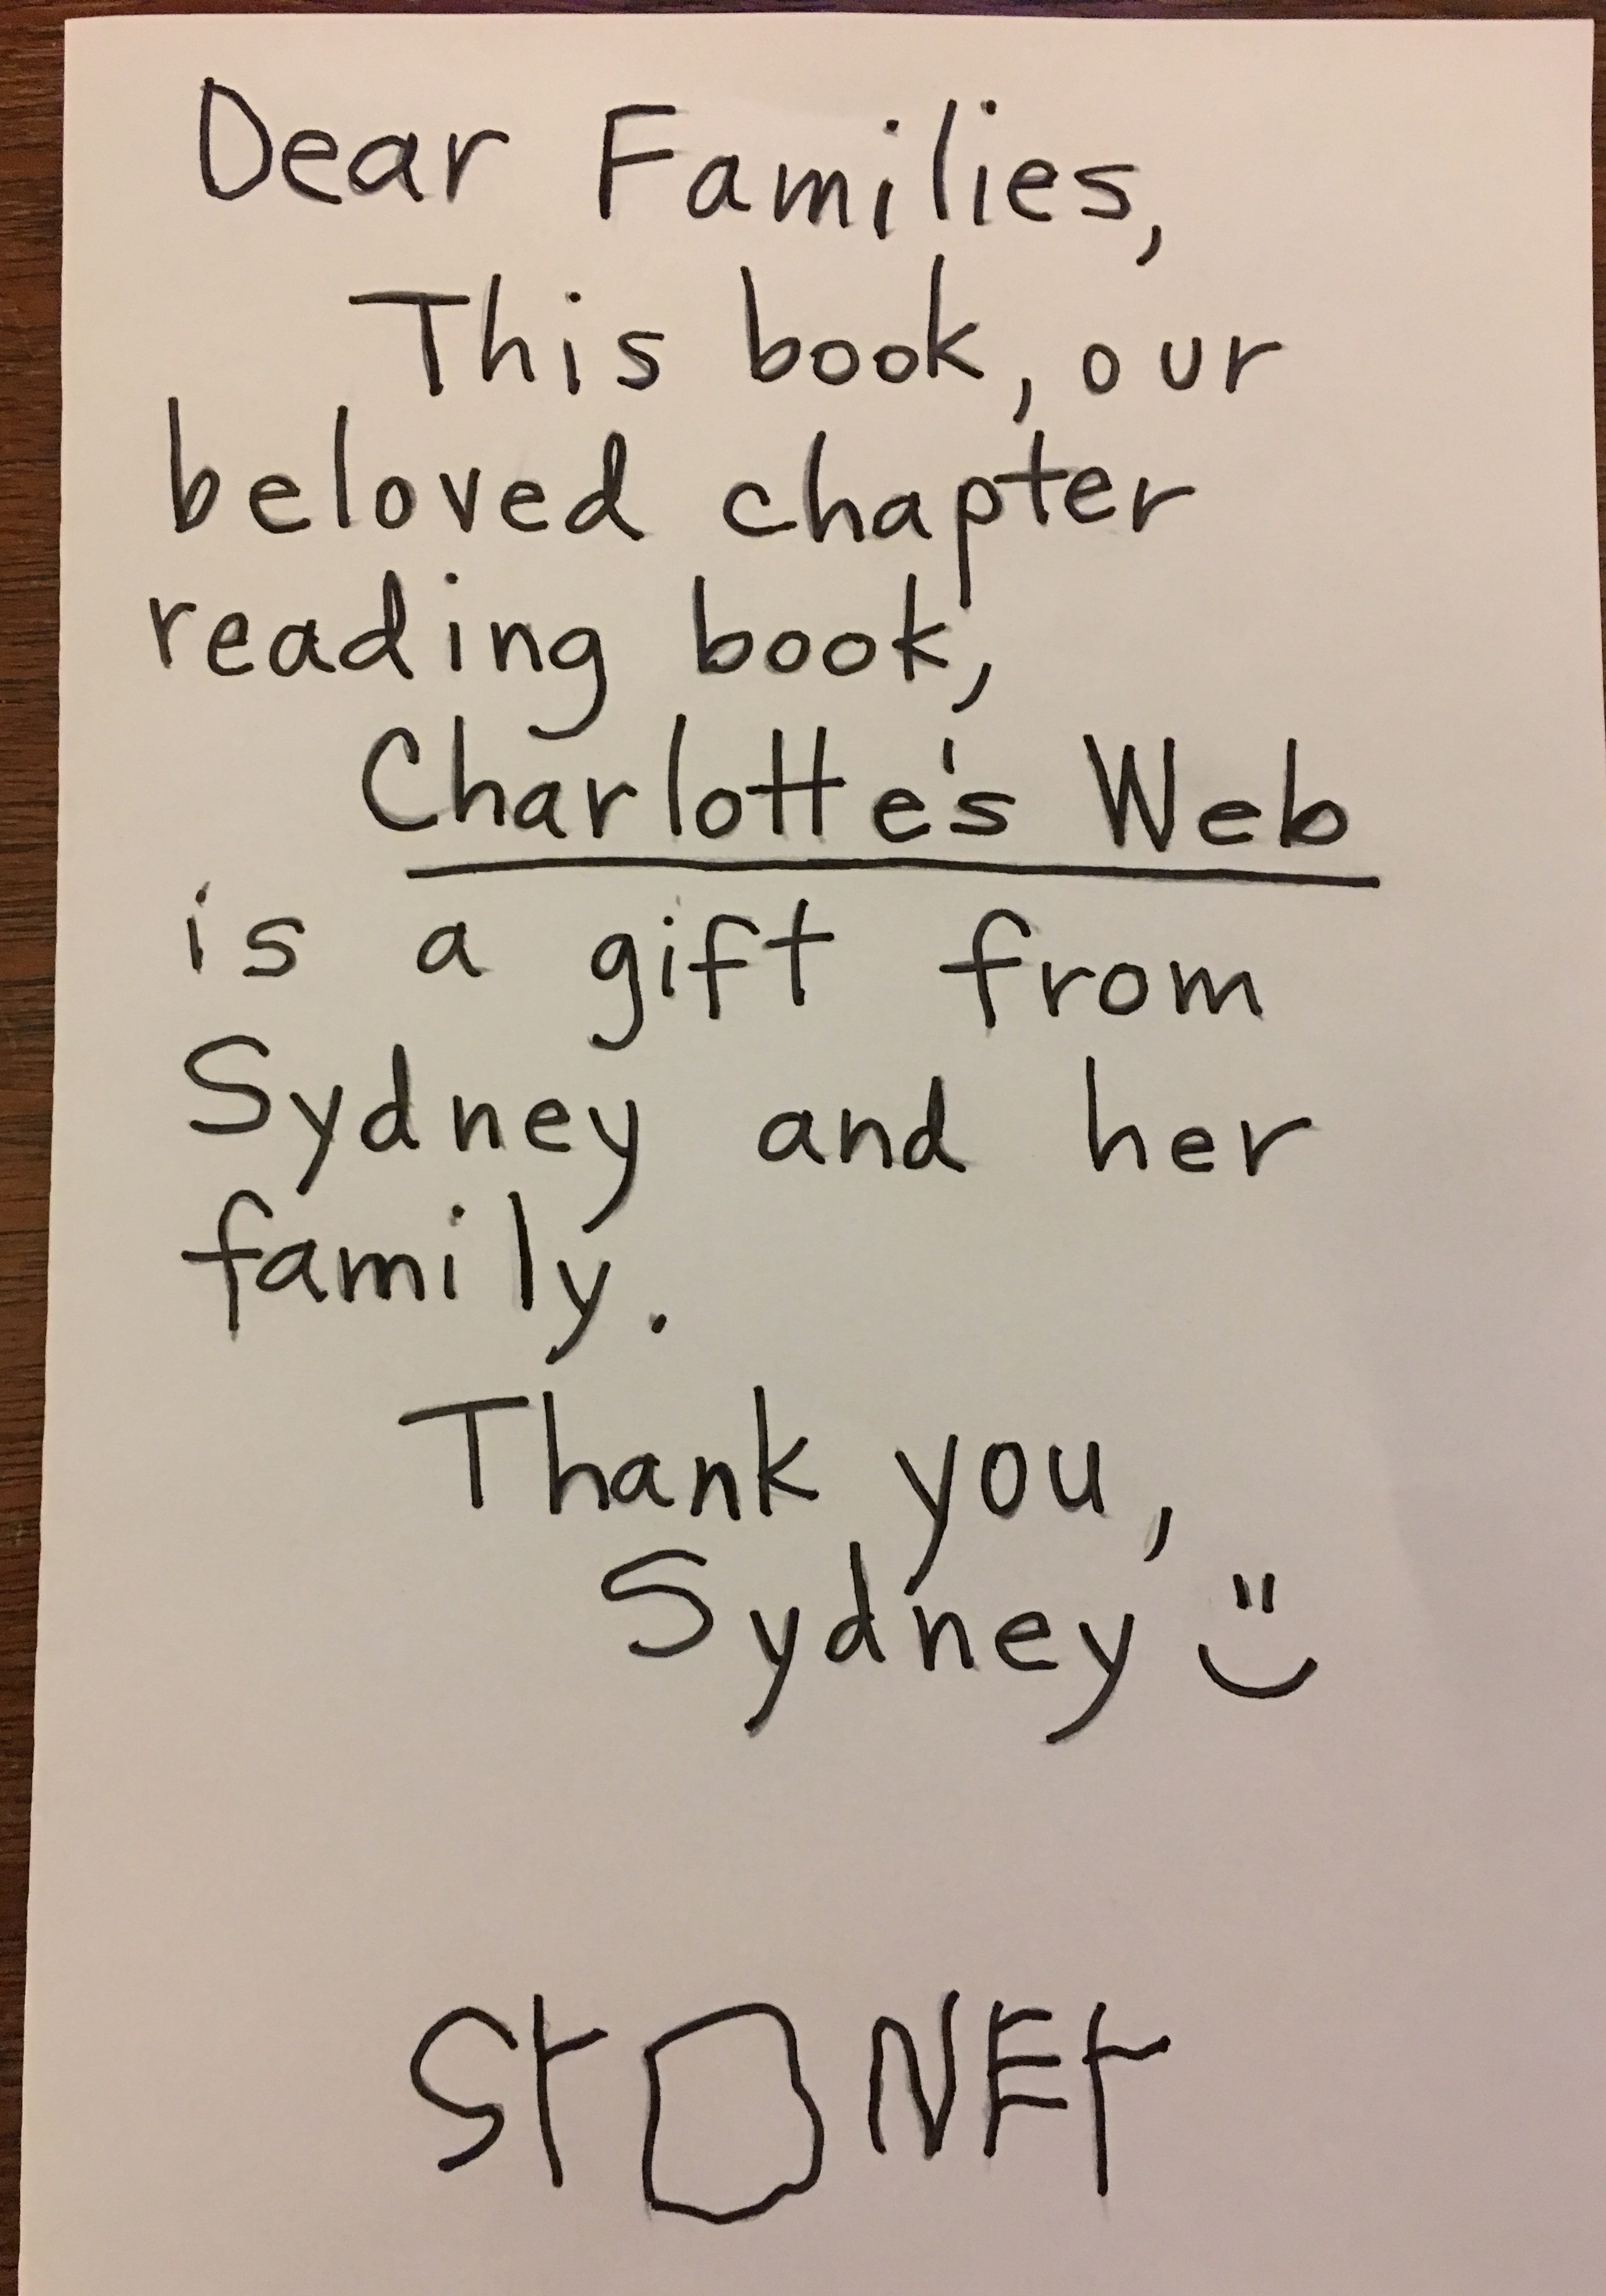 Dear Families,
This book, our
beloved chapter
reading book,
Charlotte's Web
is a gift from
Sydney and her
family.
Thank you,
Sydney
SYDNEY